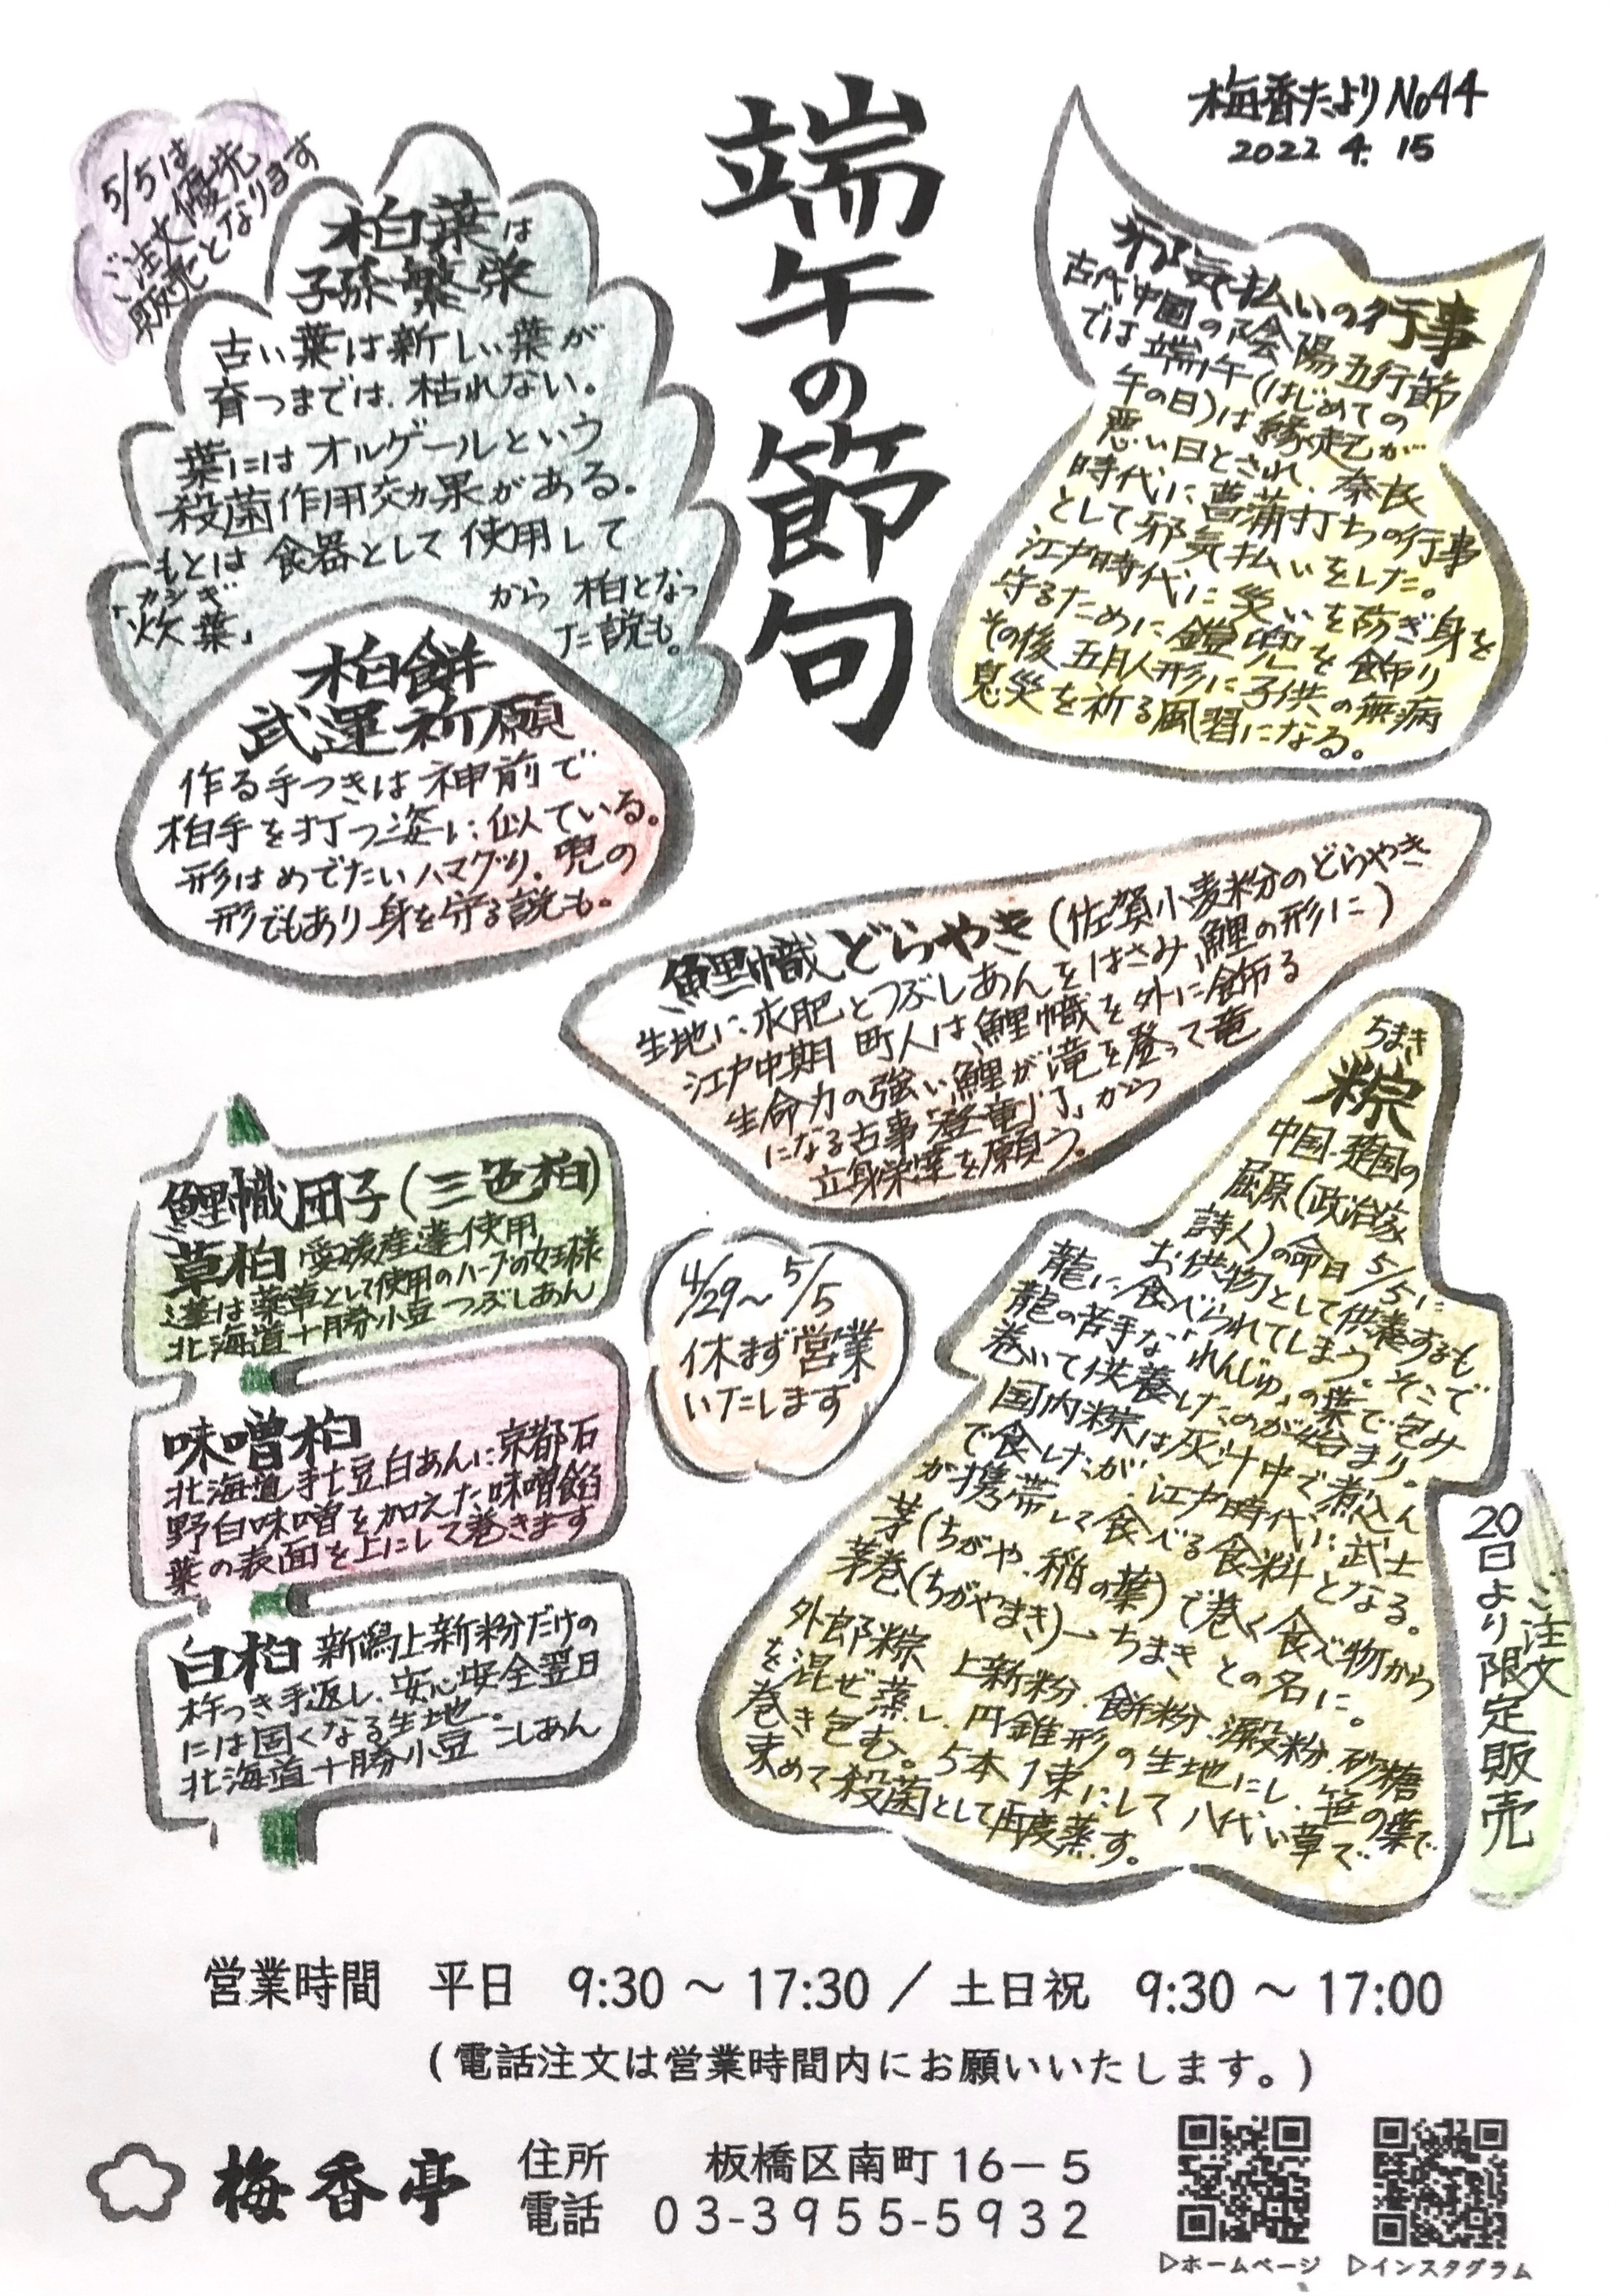 梅香たより No44
2022 4. 15
端午の節句
邪気払いの行事
古代中国の陰陽五行節
では端午(はじめての
午の日)は縁起が
悪い日とされ、奈良
時代に菖蒲打ちの行事
として邪気払いをした。
江戸時代に災いを防ぎ身を
守るために鎧兜を飾り
その後五月人形に子供の無病
息災を祈る風習になる。
5/5は
ご注文優先
販売となります
柏葉は
子孫繁栄
古い葉は新しい葉が
育つまでは、枯れない。
葉にはオルゲールという
殺菌作用効果がある。
もとは食器として使用して
「炊葉」カシギ
から柏となっ
た説も。
柏餅
武運祈願
作る手つきは神前で
柏手を打つ姿に似ている。
形はめでたいハマグリ、兜の
形でもあり身を守る説も。
鯉幟どらやき(佐賀小麦粉のどらやき
生地に求肥とつぶしあんをはさみ鯉の形に)
江戸中期 町人は鯉幟を外に飾る
生命力の強い鯉が滝を登って竜
になる古事「登竜門」から
立身栄達を願う。
ちまき
粽
中国・楚国の
屈原(政治家
詩人)の命日 5/5に
お供物として供養するも
龍に食べられてしまう。そこで
龍の苦手な「れんじゅ」の葉で包み
巻いて供養したのが始まり。
国内粽は灰汁中で煮込ん
で食したが、江戸時代に武士
が携帯して食べる食料となる。
茅(ちがや、稲の葉)で巻く食べ物から
茅巻(ちがやまき)→ちまきとの名に。
外郎粽 上新粉、餅粉、澱粉、砂糖
を混ぜ蒸し、円錐形の生地にし、笹の葉で
巻き包む。5本1束にして八代い草で
束めて殺菌として再度蒸す。
ご注文
20日より限定販売
4/29～5/5
休まず営業
いたします
鯉幟団子(三色柏)
草柏 愛媛産蓬使用
蓬は薬草として使用のハーブの女王様
北海道十勝小豆 つぶしあん
味噌柏
北海道手亡豆白あんに京都石
野白味噌を加えた味噌餡
葉の表面を上にして巻きます
白柏 新潟上新粉だけの
杵つき手返し、安心安全翌日
には固くなる生地。
北海道十勝小豆 こしあん
営業時間 平日 9:30 ～ 17:30 ／ 土日祝 9:30 ～ 17:00
(電話注文は営業時間内にお願いいたします。)
梅香亭
住所 板橋区南町16－5
電話 03-3955-5932
▷ホームページ
▷インスタグラム